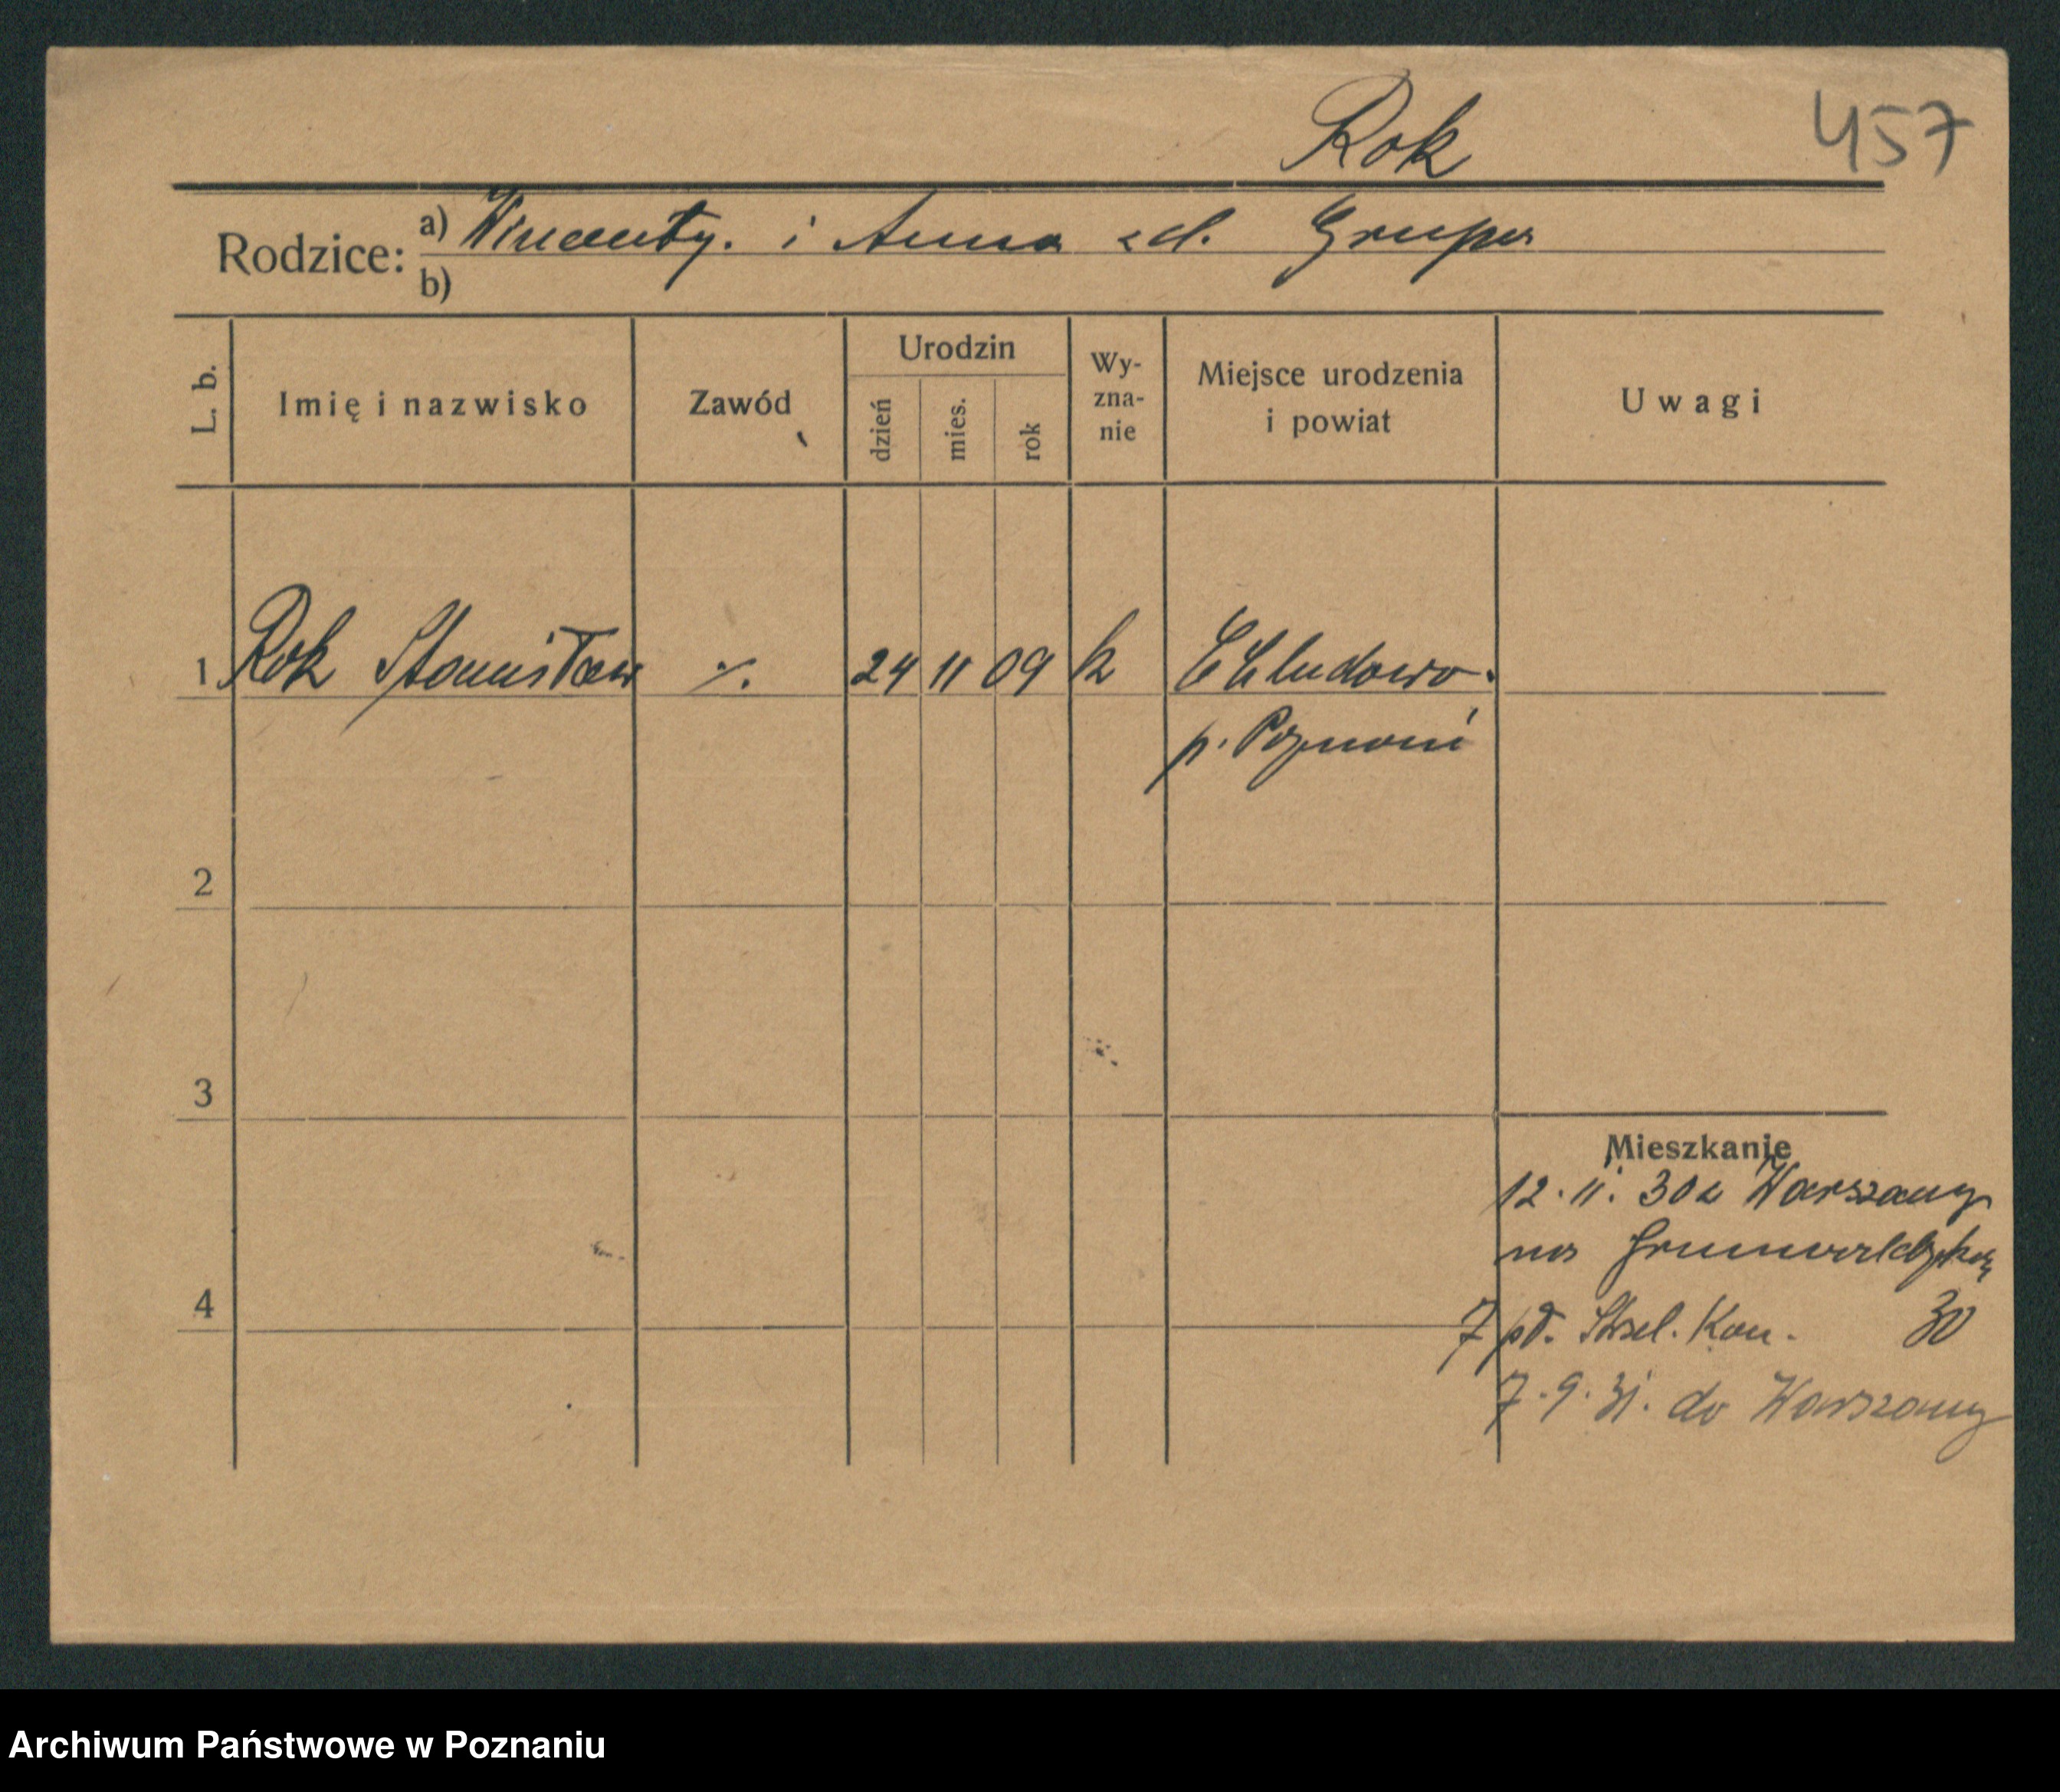 Rok
457
Rodzice: a) Wincenty. i Anna zd. Grupa
b)
L. b. Imię i nazwisko Zawód Urodzin dzień mies. rok Wy-zna-nie Miejsce urodzenia i powiat Uwagi
1 Rok Stanisław ·/. 24 11 09 k Chludowo.
p. Poznań
2
3
Mieszkanie
12. 11. 30 z Warszawy
na Grunwaldzką
4
7 pł. Strzel. Kon. 30
7. 9. 31. do Warszawy
Archiwum Państwowe w Poznaniu